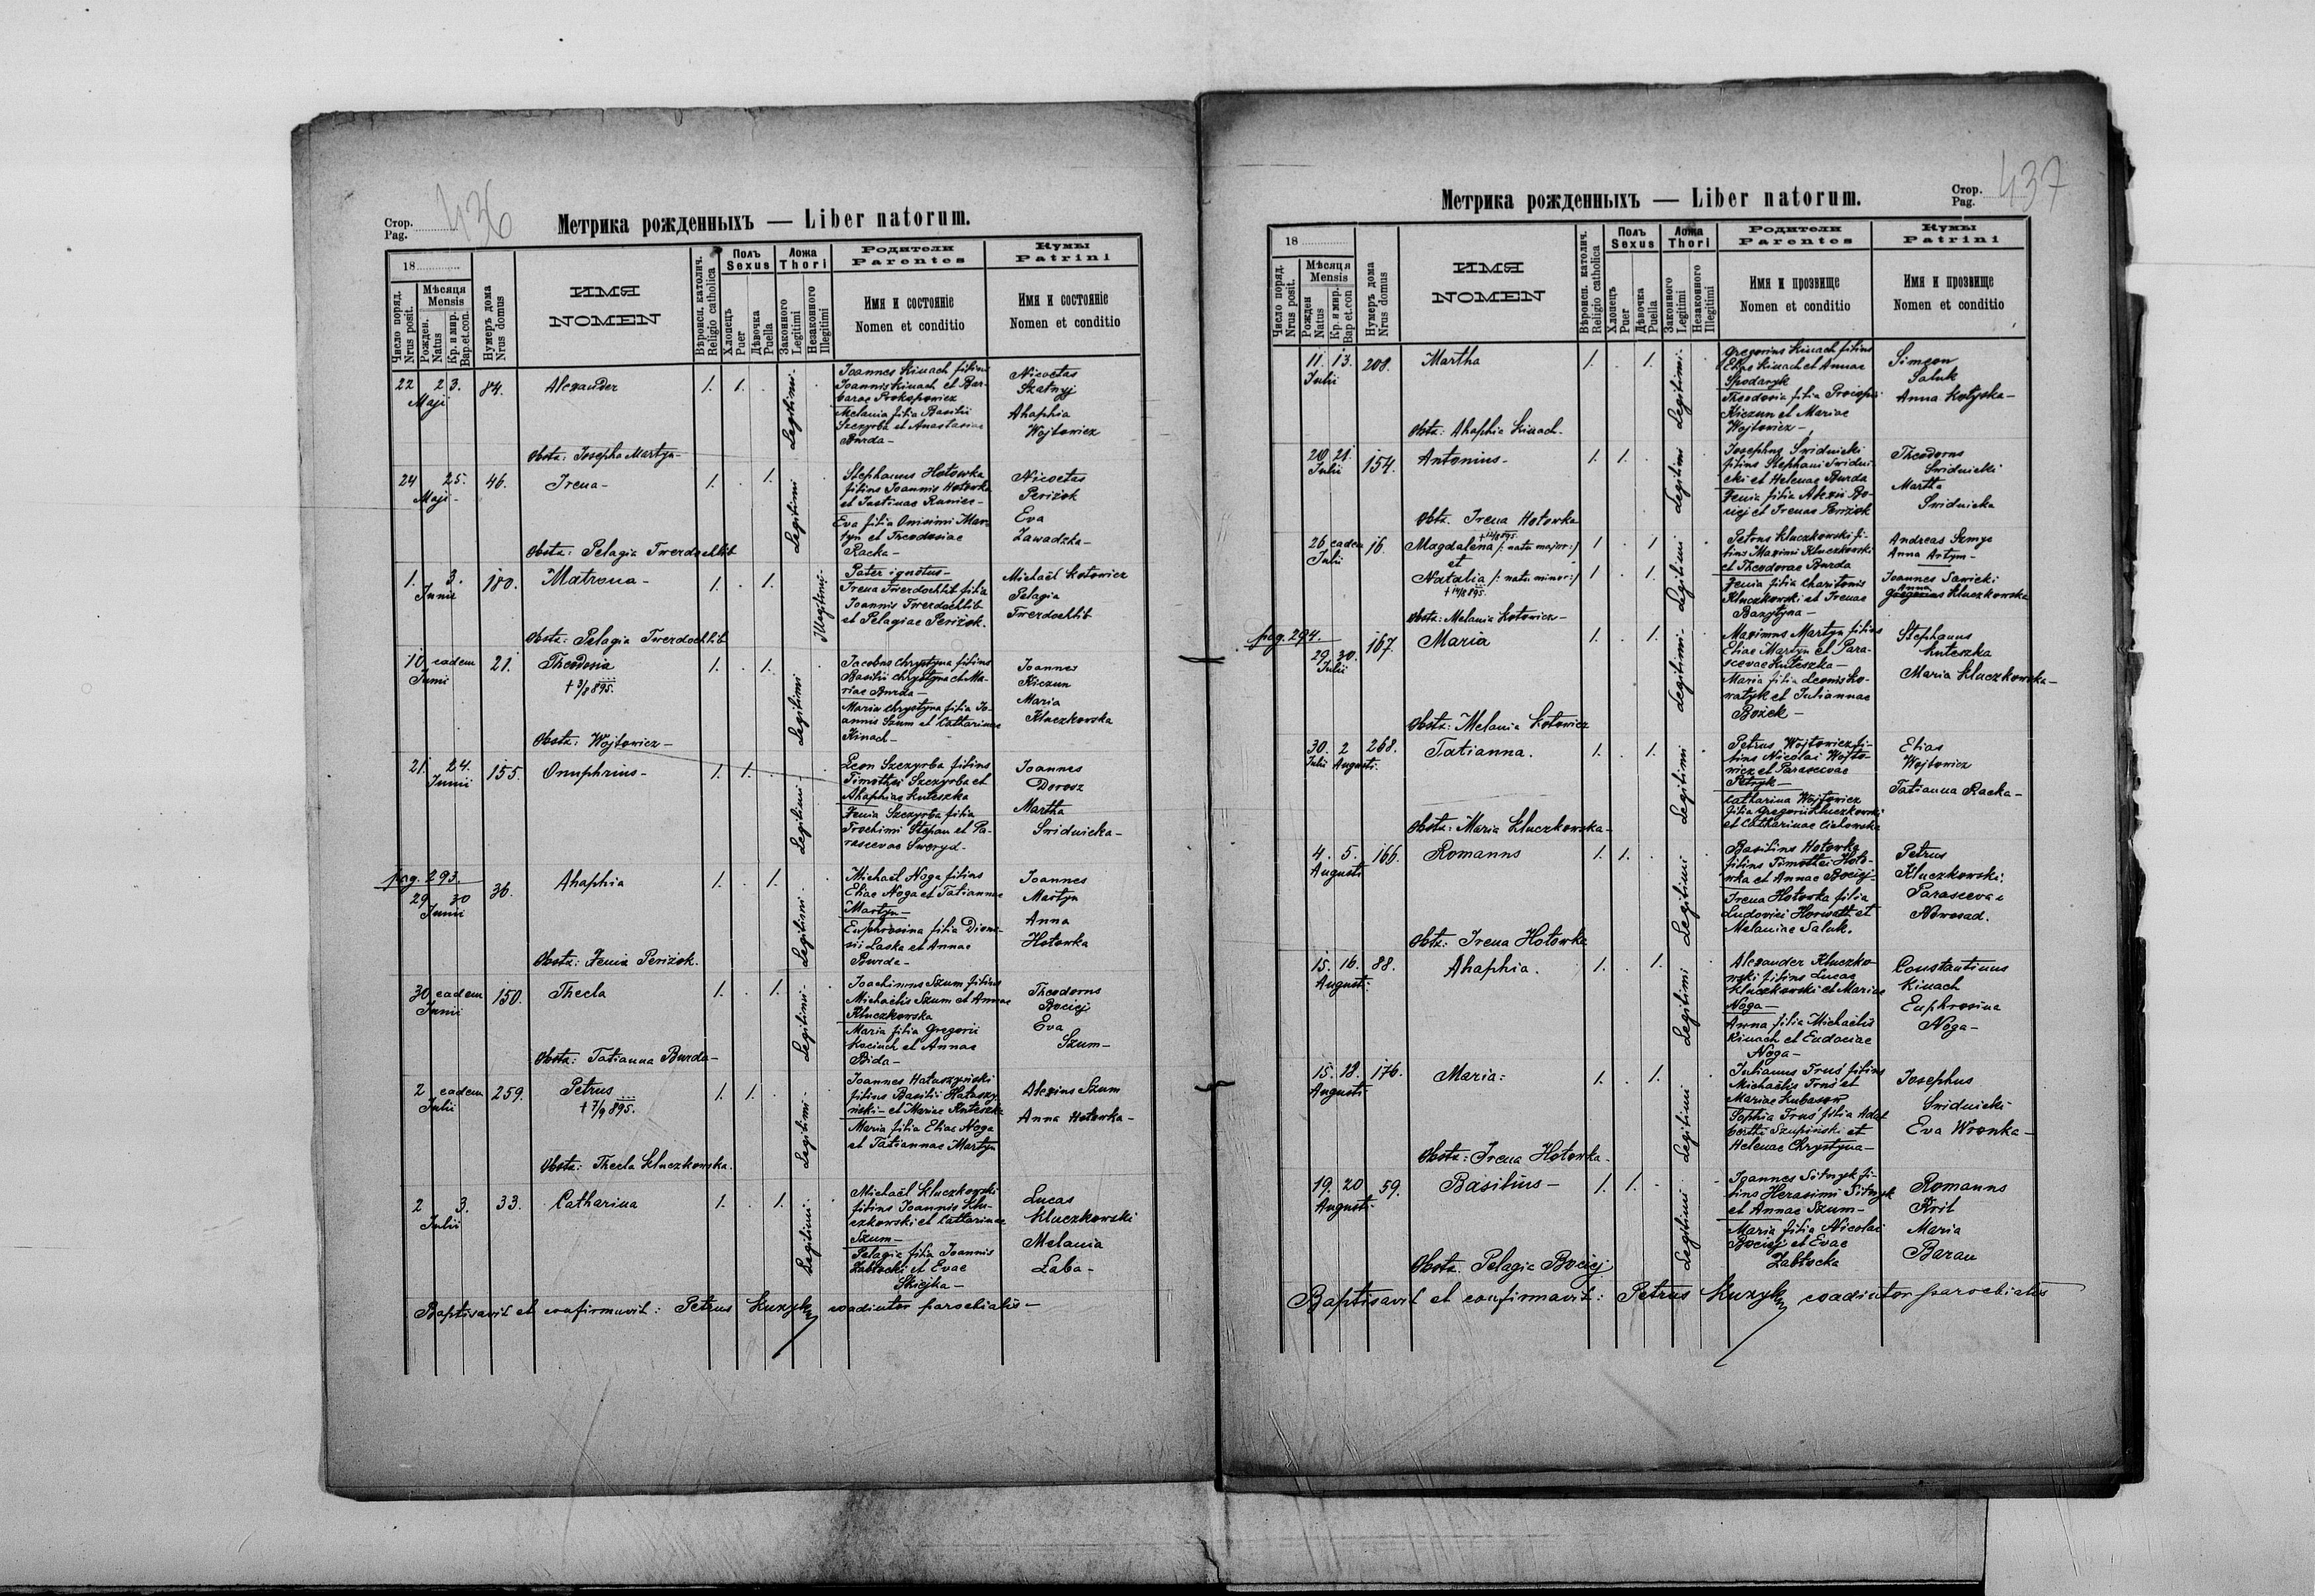 Стор.
Pag.
436
Метрика рожденныхъ — Liber natorum.
18
Число поряд.
Nrus posit.
Мѣсяця
Mensis
Рожден.
Natus
Кр. и мир.
Bap. et. con.
Нумеръ дома
Nrus domus
ИМЯ
NOMEN
Вѣроисп. католич.
Religio catholica
Полъ
Sexus
Хлопецъ
Puer
Дѣвочка
Puella
Ложа
Thori
Законного
Legitimi
Незаконного
Illegitimi
Родители
Parentes
Имя и состоянie
Nomen et conditio
Кумы
Patrini
Имя и состоянie
Nomen et conditio
22 23. 84. Alexander 1. 1. Legitimi.
Maji
Joannes Kinach filius
Joannis Kinach et Bar-
barae Prokopowicz
Melania filia Basilii
Szczyrba et Anastasiae
Burda -
Nicetas
Skatnyj
Ahaphia
Wojtowicz
Obstz: Josepha Martyn -
24 25. 46. Irena - 1. 1. Legitimi
Maji -
Stephanus Hotowka
filius Joannis Hotowka
et Justinae
Eva filia Onisimi Mar-
tyn et Theodosiae
Racka -
Nicetas
Periżok
Eva
Zawadzka -
Obstz: Pelagia Twerdochlib
1. 3. 180. Matrona - 1. 1. Illegitimi.
Junii
Pater ignotus -
Irena Twerdochlib filia
Joannis Twerdochlib
et Pelagiae Periżok.
Michaël Kotowicz
Pelagia
Twerdochlib
Obstz: Pelagia Twerdochlib
10 eadem 21. Theodosia 1. 1. Legitimi
Junii
+ 3/8 895.
Jacobus Chrystyna filius
Basilii Chrystyna et Ma-
riae Burda -
Maria Chrystyna filia Jo-
annis Szum et Catharinae
Kinach -
Joannes
Kiczun
Maria
Kluczkowska
Obstz: Wojtowicz -
21. 24. 155. Onuphrius - 1. 1. Legitimi
Junii
Leon Szczyrba filius
Timothei Szczyrba et
Ahaphiae Kuteszka
Fenia Szczyrba filia
Trochimi Stepan et Pa-
rascevae Sweryd -
Joannes
Dorosz
Martha
Swidnicka -
pag. 293.
29 30 36. Ahaphia 1. 1. Legitimi.
Junii
Michaël Noga filius
Eliae Noga et Tatiannae
Martyn -
Euphrosina filia Dioni-
sii Laska et Annae
Burda -
Joannes
Martyn
Anna
Hotowka
Obstz: Fenia Periżok.
30 eadem 150. Thecla 1. 1. Legitimi.
Junii
Joachimus Szum filius
Michaëlis Szum et Annae
Kluczkowska
Maria filia Gregorii
Kociuch et Annae
Bida -
Theodorus
Bociej
Eva
Szum -
Obstz: Tatianna Burda -
2 eadem 259. Petrus 1. 1. Legitimi -
Julii
+ 7/9 895.
Joannes Hataszyński
filius Basilii Hataszy-
ński - et Mariae Kuteszka
Maria filia Eliae Noga
et Tatiannae Martyn
Alexius Szum
Anna Hotowka -
Obstz: Thecla Kluczkowska.
2 3. 33. Catharina 1. 1. Legitimi.
Julii
Michaël Kluczkowski
filius Joannis Klu-
czkowski et Catharinae
Szum -
Pelagia filia Joannis
Zabłocki et Evae
Skiejka -
Lucas
Kluczkowski
Melania
Łaba -
Baptisavit et confirmavit: Petrus Kuzyk coadiutor parochialis -
Стор.
Pag.
437
Метрика рожденныхъ — Liber natorum.
18
Число поряд.
Nrus posit.
Мѣсяця
Mensis
Рожден
Natus
Кр. и мир.
Bap et. con
Нумеръ дома
Nrus domus
ИМЯ
NOMEN
Вѣроисп. католич.
Religio catholica
Полъ
Sexus
Хлопецъ
Puer
Дѣвочка
Puella
Ложа
Thori
Законного
Legitimi
Незаконного
Illegitimi
Родители
Parentes
Имя и прозвище
Nomen et conditio
Кумы
Patrini
Имя и прозвище
Nomen et conditio
11. 13. 208. Martha 1. 1. Legitimi.
Julii
Gregorius Kinach filius
Eliae Kinach et Annae
Spodaryk
Theodosia filia Procopii
Kiczun et Mariae
Wojtowicz -
Simeon
Saluk
Anna Kotyska -
Obstz: Ahaphia Kinach.
20 21 154. Antonius - 1. 1. Legitimi
Julii
Josephus Swidnicki
filius Stephani Swidni-
cki et Helenae Burda
Fenia filia Alexii Bo-
ciej et Irenae Periżok
Theodorus
Swidnicki
Martha
Swidnicka
Obstz. Irena Hotowka
26 eadem 16. Magdalena /: natu major :/ 1. 1 Legitimi
Julii
+ 12/8 895.
et
Natalia /: natu minor :/ 1. 1.
+ 14/8 895.
Petrus Kluczkowski fi-
lius Maximi Kluczkowski
et Theodorae Burda
Fenia filia Charitonis
Kluczkowski et Irenae
Barytyna -
Andreas Szmyc
Anna Artym -
Joannes Sawicki
Anna
Kluczkowska
Obstz: Melania Kotowicz -
pag. 294.
29 30. 167. Maria 1. 1. Legitimi -
Julii
Maximus Martyn filius
Eliae Martyn et Para-
scevae Kuteszka -
Maria filia Leonis Ko-
watyk et Juliannae
Bożek -
Stephanus
Kuteszka
Maria Kluczkowska -
Obstz: Melania Kotowicz
30. 2 268. Tatianna. 1. 1. Legitimi
Julii Augusti.
Petrus Wojtowicz fi-
lius Nicolai Wojto-
wicz et Parascevae
Petryk -
Catharina Wojtowicz
filia Gregorii Kluczkowski
et Catharinae Cichowska
Elias
Wojtowicz
Tatianna Racka -
Obstz: Maria Kluczkowska -
4. 5. 166. Romanus 1. 1. Legitimi
Augusti
Basilius Hotowka
filius Timothei Hoto-
wka et Annae Bociej -
Irena Hotowka filia
Ludovici Horwatt et
Melaniae Saluk.
Petrus
Kluczkowski
Parasceva
Nowosad.
Obstz: Irena Hotowka
15. 16. 88. Ahaphia. 1. 1. Legitimi
Augusti.
Alexander Kluczko-
wski filius Lucae
Kluczkowski et Mariae
Noga -
Anna filia Michaëlis
Kinach et Eudociae
Noga -
Constantinus
Kinach
Euphrosina
Noga -
15. 18. 176. Maria: 1. 1. Legitimi
Augusti
Julianus Truś filius
Michaëlis Truś et
Mariae Kubasow
Sophia Truś filia Adal-
berti Szupiński et
Helenae Chrystyna -
Josephus
Swidnicki
Eva Wronka -
Obstz: Irena Hotowka.
19. 20 59. Basilius - 1. 1. Legitimi
Augusti.
Joannes Sitnyk fi-
lius Herasimi Sitnyk
et Annae Szum -
Maria filia Nicolai
Bociej et Evae
Zabłocka
Romanus
Kril
Maria
Baran
Obstz. Pelagia Bociej.
Baptisavit et confirmavit: Petrus Kuzyk coadiutor parochialis